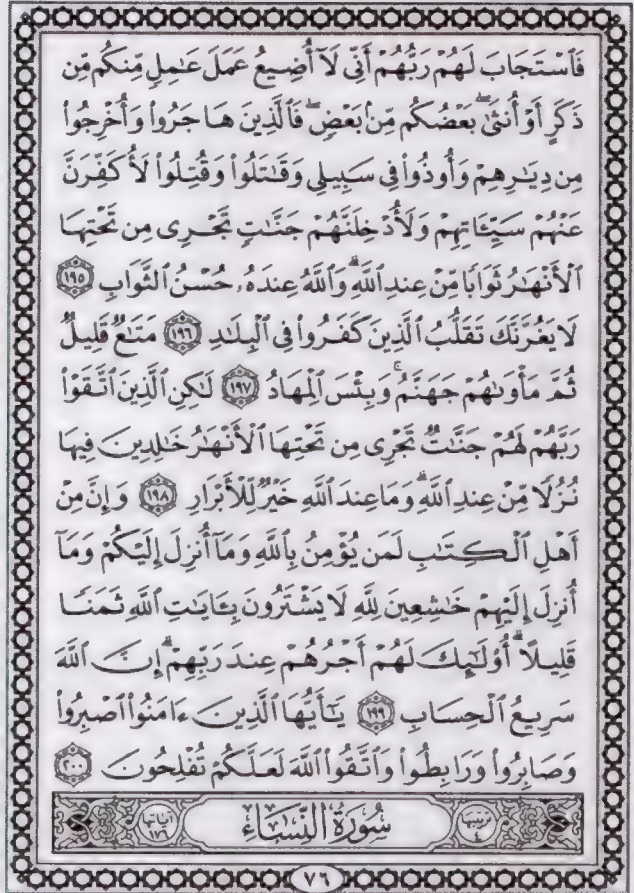 فَٱسْتَجَابَ لَهُمْ رَبُّهُمْ أَنِّى لَآ أُضِيعُ عَمَلَ عَـٰمِلٍ مِّنكُم مِّن
ذَكَرٍ أَوْ أُنثَىٰ ۖ بَعْضُكُم مِّنۢ بَعْضٍ ۖ فَٱلَّذِينَ هَاجَرُوا۟ وَأُخْرِجُوا۟
مِن دِيَـٰرِهِمْ وَأُوذُوا۟ فِى سَبِيلِى وَقَـٰتَلُوا۟ وَقُتِلُوا۟ لَأُكَفِّرَنَّ
عَنْهُمْ سَيِّـَٔاتِهِمْ وَلَأُدْخِلَنَّهُمْ جَنَّـٰتٍ تَجْرِى مِن تَحْتِهَا
ٱلْأَنْهَـٰرُ ثَوَابًا مِّنْ عِندِ ٱللَّهِ ۗ وَٱللَّهُ عِندَهُۥ حُسْنُ ٱلثَّوَابِ ١٩٥
لَا يَغُرَّنَّكَ تَقَلُّبُ ٱلَّذِينَ كَفَرُوا۟ فِى ٱلْبِلَـٰدِ ١٩٦ مَتَـٰعٌ قَلِيلٌ
ثُمَّ مَأْوَىٰهُمْ جَهَنَّمُ ۚ وَبِئْسَ ٱلْمِهَادُ ١٩٧ لَـٰكِنِ ٱلَّذِينَ ٱتَّقَوْا۟
رَبَّهُمْ لَهُمْ جَنَّـٰتٌ تَجْرِى مِن تَحْتِهَا ٱلْأَنْهَـٰرُ خَـٰلِدِينَ فِيهَا
نُزُلًا مِّنْ عِندِ ٱللَّهِ ۗ وَمَا عِندَ ٱللَّهِ خَيْرٌ لِّلْأَبْرَارِ ١٩٨ وَإِنَّ مِنْ
أَهْلِ ٱلْكِتَـٰبِ لَمَن يُؤْمِنُ بِٱللَّهِ وَمَآ أُنزِلَ إِلَيْكُمْ وَمَآ
أُنزِلَ إِلَيْهِمْ خَـٰشِعِينَ لِلَّهِ لَا يَشْتَرُونَ بِـَٔايَـٰتِ ٱللَّهِ ثَمَنًا
قَلِيلًا ۗ أُو۟لَـٰٓئِكَ لَهُمْ أَجْرُهُمْ عِندَ رَبِّهِمْ ۗ إِنَّ ٱللَّهَ
سَرِيعُ ٱلْحِسَابِ ١٩٩ يَـٰٓأَيُّهَا ٱلَّذِينَ ءَامَنُوا۟ ٱصْبِرُوا۟
وَصَابِرُوا۟ وَرَابِطُوا۟ وَٱتَّقُوا۟ ٱللَّهَ لَعَلَّكُمْ تُفْلِحُونَ ٢٠٠
ترتيبها ٤ سُورَةُ النِّسَاءِ آياتها ١٧٦
٧٦